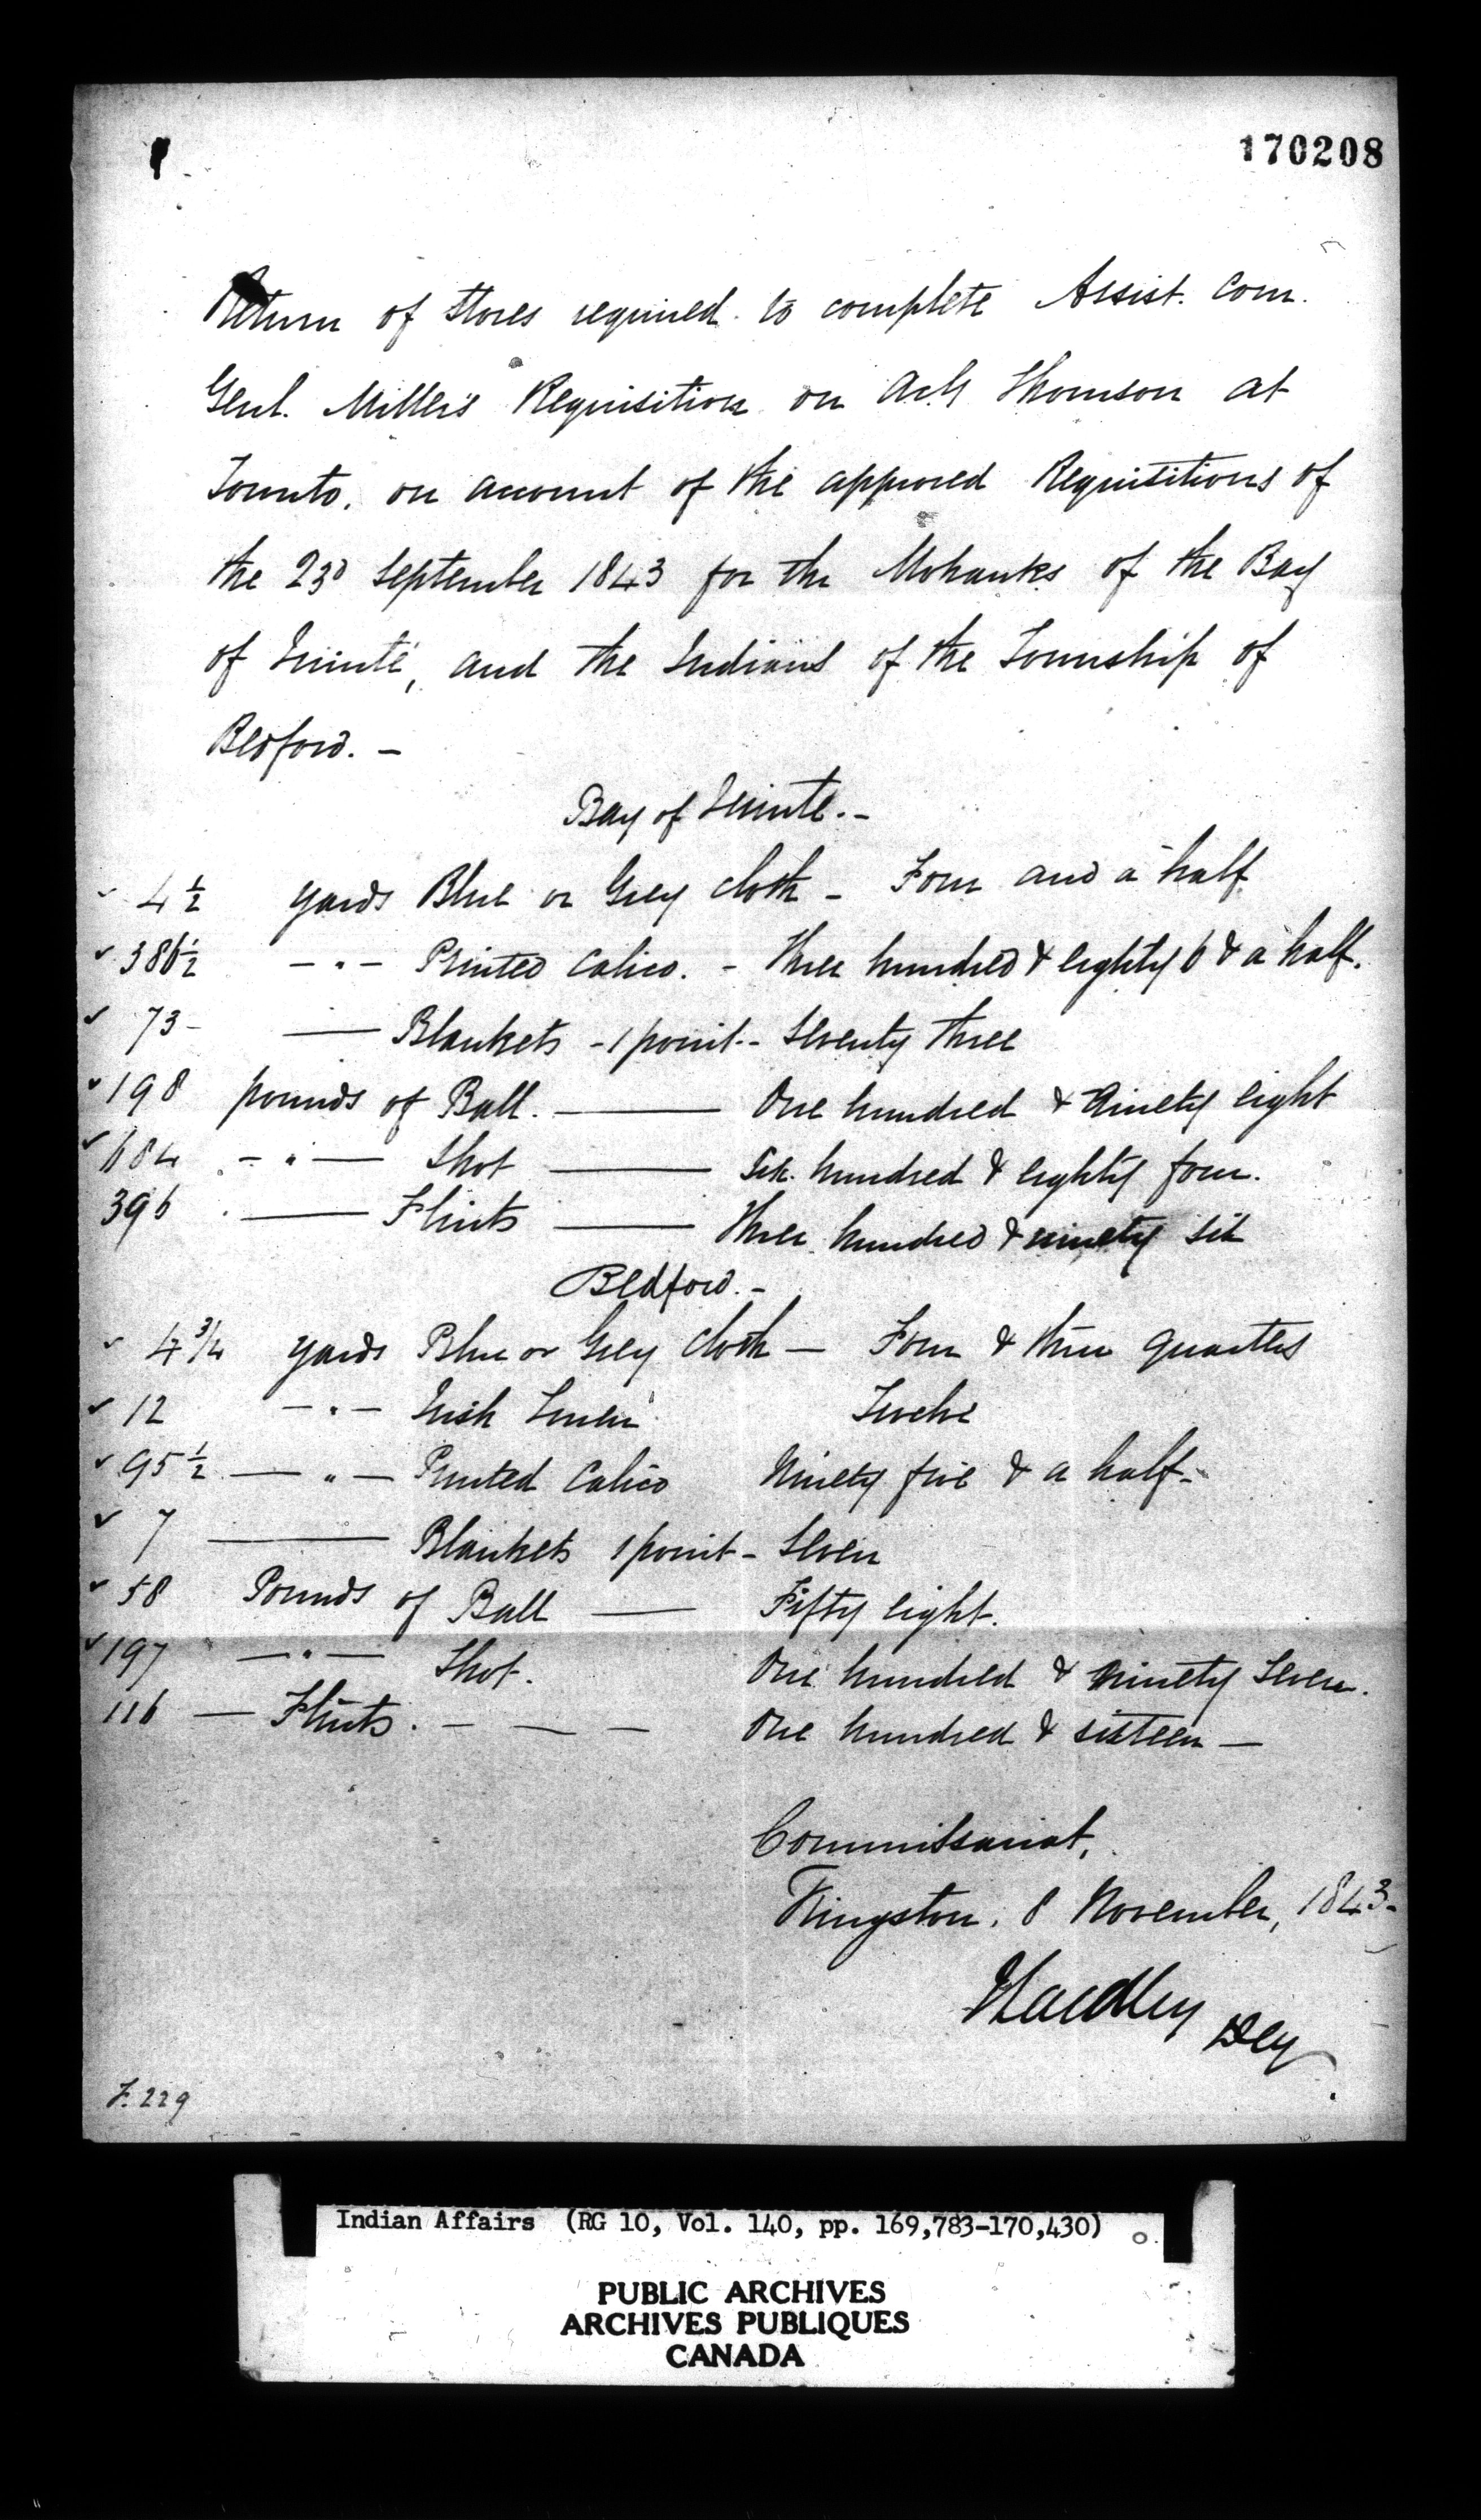 170208
Return of Stores required to complete Assist. Com.
Genl. Miller's Requisition on Arch Thomson at
Toronto, on account of the approved Requisitions of
the 23d September 1843 for the Mohawks of the Bay
of Quinté, and the Indians of the Township of
Bedford. -
Bay of Quinte. -
4 1/2 yards Blue or Grey cloth - Four and a half
386 1/2 - " - Printed Calico. - Three hundred & eighty 6 & a half.
73 - — Blankets - 1 point - Seventy three
198 pounds of Ball. — One hundred & Ninety eight
684 - " — Shot — Six hundred & eighty four.
396 — Flints — Three hundred & ninety six
Bedford. -
4 3/4 yards Blue or Grey Cloth — Four & three quarters
12 - " - Irish Linen Twelve
95 1/2 — " — Printed Calico Ninety five & a half -
7 — Blankets 1 point - Seven
58 Pounds of Ball — Fifty eight.
197 — " — Shot. One hundred & Ninety Seven.
116 — Flints. - — — One hundred & sixteen —
Commissariat,
Kingston, 8 November, 1843 -
F. 229
Indian Affairs (RG 10, Vol. 140, pp. 169,783-170,430)
PUBLIC ARCHIVES
ARCHIVES PUBLIQUES
CANADA